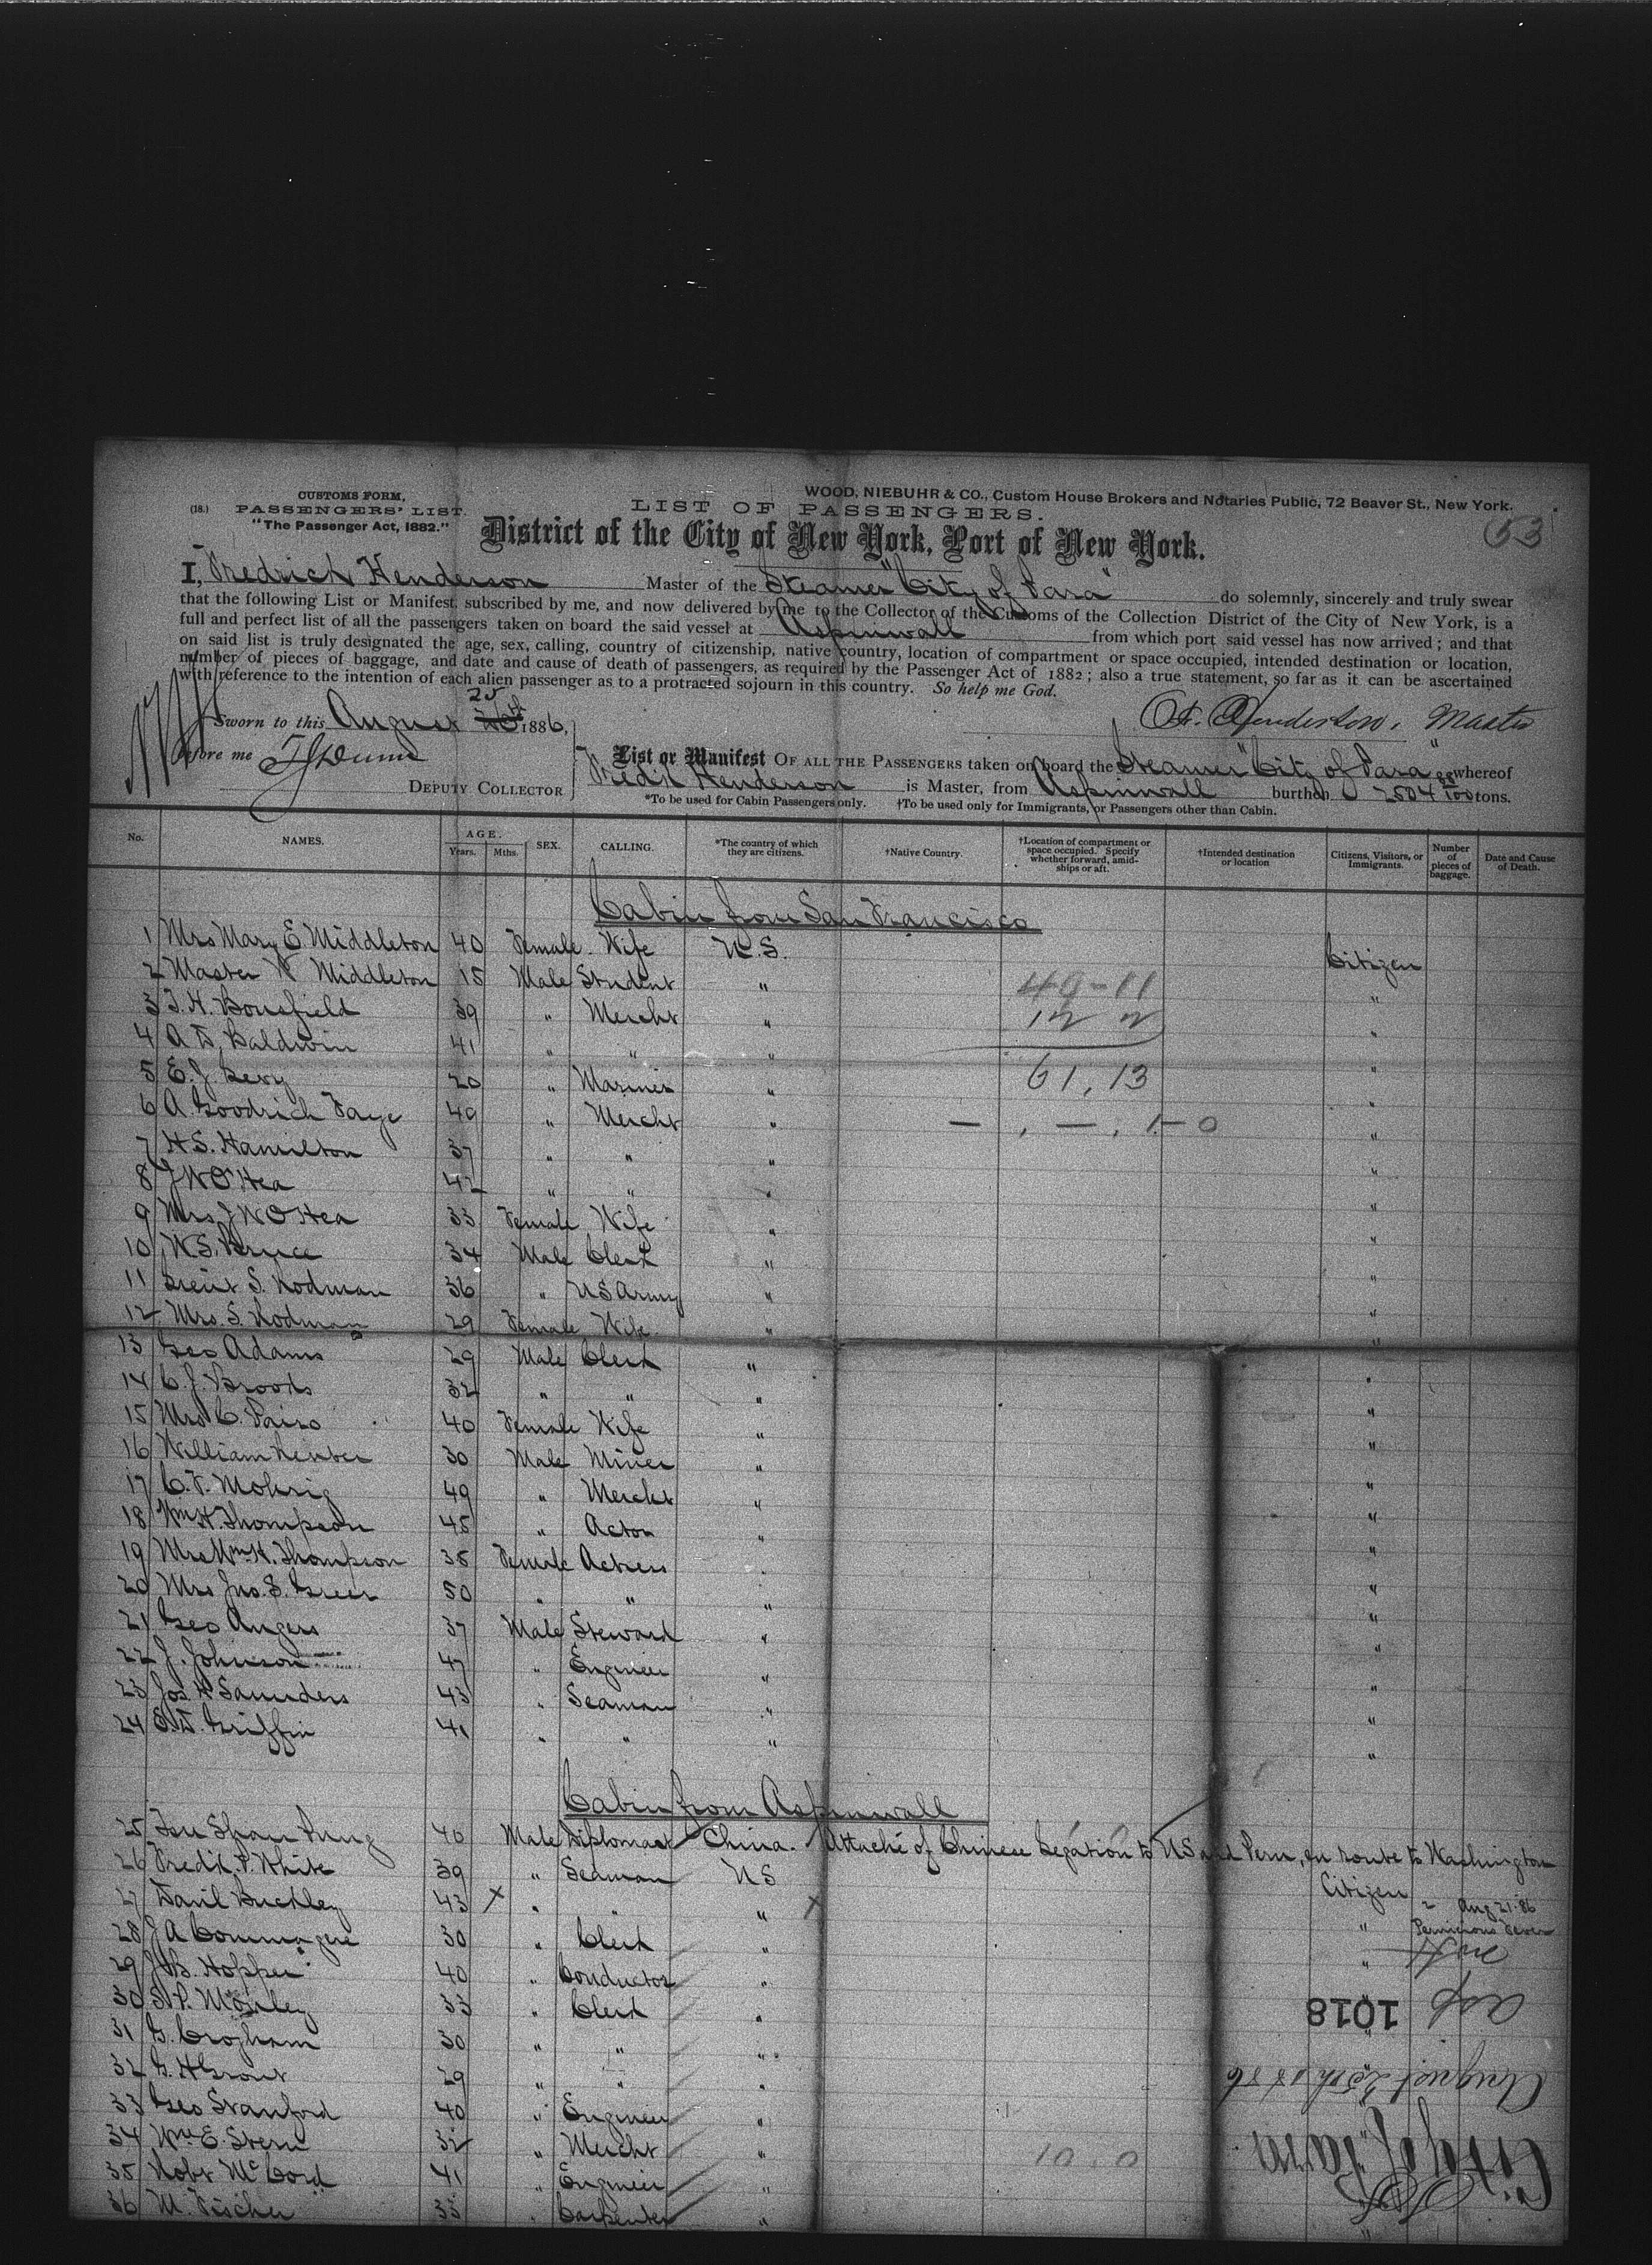 WOOD, NIEBUHR & CO., Custom House Brokers and Notaries Public, 72 Beaver St., New York.
CUSTOMS FORM,
(18.) PASSENGERS' LIST.
"The Passenger Act, 1882."
LIST OF PASSENGERS.
53
District of the City of New York, Port of New York.
I, Fredrich Henderson Master of the Steamer "City of Para" do solemnly, sincerely and truly swear
that the following List or Manifest, subscribed by me, and now delivered by me to the Collector of the Customs of the Collection District of the City of New York, is a
full and perfect list of all the passengers taken on board the said vessel at Aspinwall from which port said vessel has now arrived; and that
on said list is truly designated the age, sex, calling, country of citizenship, native country, location of compartment or space occupied, intended destination or location,
number of pieces of baggage, and date and cause of death of passengers, as required by the Passenger Act of 1882; also a true statement, so far as it can be ascertained
with reference to the intention of each alien passenger as to a protracted sojourn in this country. So help me God.
Sworn to this August 25 1886,
Henderson, Master
before me
DEPUTY COLLECTOR
List or Manifest OF ALL THE PASSENGERS taken on board the Steamer "City of Para" whereof
Fredk Henderson is Master, from Aspinwall burthen 2504 tons.
*To be used for Cabin Passengers only. †To be used only for Immigrants, or Passengers other than Cabin.
No. NAMES. AGE. Years. Mths. SEX. CALLING. *The country of which they are citizens. †Native Country. †Location of compartment or space occupied. Specify whether forward, amidships or aft. †Intended destination or location Citizens, Visitors, or Immigrants. Number of pieces of baggage. Date and Cause of Death.
Cabin from San Francisco
1 Mrs Mary E Middleton 40 Female Wife U.S. Citizen
2 Master Middleton 15 Male Student " 49-11 "
3 T. H. Bousfield 39 " Mercht " 12 2 "
4 A D, Baldwin 41 " " " "
5 E. J. Levy 20 " Mariner " 61, 13 "
6 A. Goodrich Faye 49 " Mercht " "
7 H S. Hamilton 37 " " " "
8 J W O'Hea 42 " " " "
9 Mrs J W O'Hea 33 Female Wife " "
10 W S. Bruce 34 Male Clerk " "
11 Lieut S. Rodman 36 " US Army " "
12 Mrs. S. Rodman 29 Female Wife " "
13 Geo Adams 29 Male Clerk " "
14 C. J. Brooks 32 " " " "
15 Mrs C. Pairo 40 Female Wife " "
16 William 30 Male Miner " "
17 C. F. Mohrig 49 " Mercht " "
18 Wm H. Thompson 45 " Actor " "
19 Mrs Wm H. Thompson 35 Female Actress " "
20 Mrs Jno. S. Greer 50 " " " "
21 Geo Angers 37 Male Steward " "
22 J. Johnson 47 " Engineer " "
23 Jos H Saunders 43 " Seaman " "
24 E. D. Griffin 41 " " " "
Cabin from Aspinwall
25 40 Male Diplomat China. Attaché of Chinese Legation to US and Peru, en route to Washington
26 Fredk. P. White 39 " Seaman US Citizen
27 Danl Buckley 43 X " " " X " 2 Aug 21.86
Pernicious Fever
28 J A Commagere 30 " Clerk " "
29 J. B. Hopper 40 " Conductor " "
30 S. P. Morley 33 " Clerk "
1018
31 G. Croghan 30 " " "
32 G. H Grout 29 " " "
August 25th 1886
33 Geo Stanford 40 " Engineer "
34 Wm E. Stern 32 " Mercht " 10.0
City of Para
35 Robt McCord 41 " Engineer "
36 M. Fischer 33 " Carpenter "